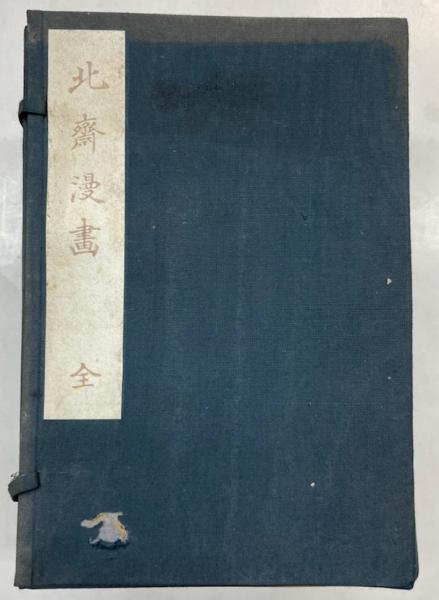 北齋漫畫 全